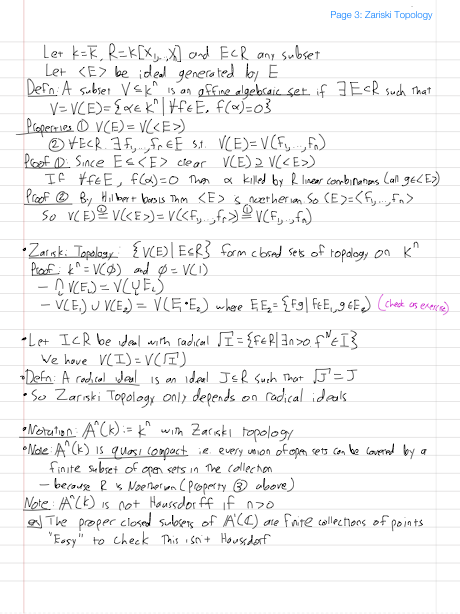 Page 3: Zariski Topology
Let k=k̅, R=k[x₁,...,x] and E⊂R any subset
Let <E> be ideal generated by E
Defn: A subset V⊆kⁿ is an affine algebraic set if ∃E⊂R such that
V=V(E)={α∈kⁿ | ∀f∈E, f(α)=0}
Properties ① V(E)=V(<E>)
② ∀E⊂R ∃f₁,...,fₙ∈E s.t. V(E)=V(f₁,...,fₙ)
Proof ①: Since E⊆<E> clear V(E)⊇V(<E>)
If ∀f∈E, f(α)=0 then α killed by R linear combinations (all g∈<E>)
Proof ② By Hilbert basis thm <E> is noetherian So <E>=<f₁,...,fₙ>
So V(E)①=V(<E>)=V(<f₁,...,fₙ>)①=V(f₁,...,fₙ)
• Zariski Topology: {V(E) | E⊆R} form closed sets of topology on kⁿ
Proof: kⁿ=V(∅) and ∅=V(1)
– ∩V(Eᵢ)=V(∪Eᵢ)
– V(E₁)∪V(E₂)=V(E₁•E₂) where E₁E₂={fg | f∈E₁,g∈E₂} (check as exercise)
• Let I⊂R be ideal with radical √I={f∈R | ∃n>0, fᴺ∈I}
We have V(I)=V(√I)
• Defn: A radical ideal is an ideal J⊆R such that √J=J
• So Zariski Topology only depends on radical ideals
• Notation: 𝔸ⁿ(k):=kⁿ with Zariski topology
• Note: 𝔸ⁿ(k) is quasi compact i.e. every union of open sets can be covered by a
finite subset of open sets in the collection
– because R is Noetherian (Property ② above)
Note: 𝔸ⁿ(k) is not Haussdorff if n>0
ex) The proper closed subsets of 𝔸¹(ℂ) are finite collections of points
"Easy" to check this isn't Hausdorf